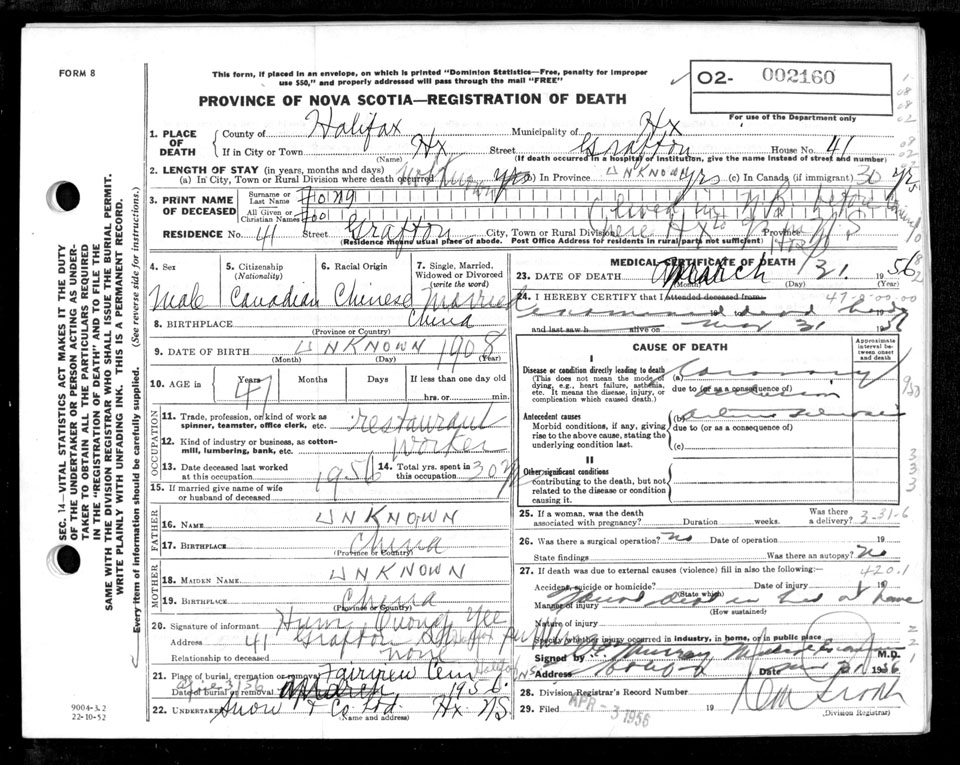 FORM 8
This form, if placed in an envelope, on which is printed "Dominion Statistics—Free, penalty for improper
use $50," and properly addressed will pass through the mail "FREE"
O2- 002160
For use of the Department only
PROVINCE OF NOVA SCOTIA—REGISTRATION OF DEATH
1. PLACE OF DEATH
County of Halifax Municipality of Hx
If in City or Town Hx Street Grafton House No. 41
(Name) (If death occurred in a hospital or institution, give the name instead of street and number)
2. LENGTH OF STAY (in years, months and days)
(a) In City, Town or Rural Division where death occurred yrs (b) In Province UNKNOWN yrs (c) In Canada (if immigrant) 30 yrs
3. PRINT NAME OF DECEASED
Surname or Last Name Fong
All Given or Christian Names Foo
RESIDENCE No. 41 Street Grafton City, Town or Rural Division Hx Province N S
(Residence means usual place of abode. Post Office Address for residents in rural parts not sufficient)
4. Sex
Male
5. Citizenship (Nationality)
Canadian
6. Racial Origin
Chinese
7. Single, Married, Widowed or Divorced (write the word)
Married
8. BIRTHPLACE China
(Province or Country)
9. DATE OF BIRTH UNKNOWN 1908
(Month) (Day) (Year)
10. AGE in Years 47 Months Days If less than one day old
hrs. or min.
OCCUPATION
11. Trade, profession, or kind of work as spinner, teamster, office clerk, etc. restaurant
12. Kind of industry or business, as cotton-mill, lumbering, bank, etc. worker
13. Date deceased last worked at this occupation 1956
14. Total yrs. spent in this occupation 30 yrs
15. If married give name of wife or husband of deceased
FATHER
16. NAME UNKNOWN
17. BIRTHPLACE China
(Province or Country)
MOTHER
18. MAIDEN NAME UNKNOWN
19. BIRTHPLACE China
(Province or Country)
20. Signature of informant Hum Quong Yee
Address 41 Grafton St Halifax
Relationship to deceased none
21. Place of burial, cremation or removal Fairview Cem Halifax NS
Date of burial or removal March 1956
22. Undertaker Snow & Co Ltd. Hx NS
(Name and address)
MEDICAL CERTIFICATE OF DEATH
23. DATE OF DEATH March 31 1956
(Month) (Day) (Year)
24. I HEREBY CERTIFY that I attended deceased from 19
examined dead body
and last saw h alive on 31 19
CAUSE OF DEATH
Approximate interval between onset and death
I
Disease or condition directly leading to death
(This does not mean the mode of dying, e.g., heart failure, asthenia, etc. It means the disease, injury, or complication which caused death.)
(a) Coronary
due to (or as a consequence of)
occlusion
Antecedent causes
Morbid conditions, if any, giving rise to the above cause, stating the underlying condition last.
(b)
due to (or as a consequence of)
(c)
II
Other significant conditions
contributing to the death, but not related to the disease or condition causing it.
25. If a woman, was the death associated with pregnancy? Duration weeks. Was there a delivery? 3-31-6
26. Was there a surgical operation? No Date of operation 19
State findings Was there an autopsy? No
27. If death was due to external causes (violence) fill in also the following:— 420.1
Accident, suicide or homicide? Date of injury 19
(State which)
Manner of injury Found dead in bed at home
(How sustained)
Nature of injury
Specify whether injury occurred in industry, in home, or in public place
Signed by Murray M.D.
Address Date 1956
28. Division Registrar's Record Number
29. Filed APR - 3 1956 19
(Division Registrar)
SEC. 14—VITAL STATISTICS ACT MAKES IT THE DUTY
OF THE UNDERTAKER OR PERSON ACTING AS UNDER-
TAKER TO OBTAIN ALL THE PARTICULARS REQUIRED
IN THE "REGISTRATION OF DEATH" AND TO FILE THE
SAME WITH THE DIVISION REGISTRAR WHO SHALL ISSUE THE BURIAL PERMIT.
WRITE PLAINLY WITH UNFADING INK. THIS IS A PERMANENT RECORD.
Every item of information should be carefully supplied. (See reverse side for instructions.)
9004-3.2
22-10-52